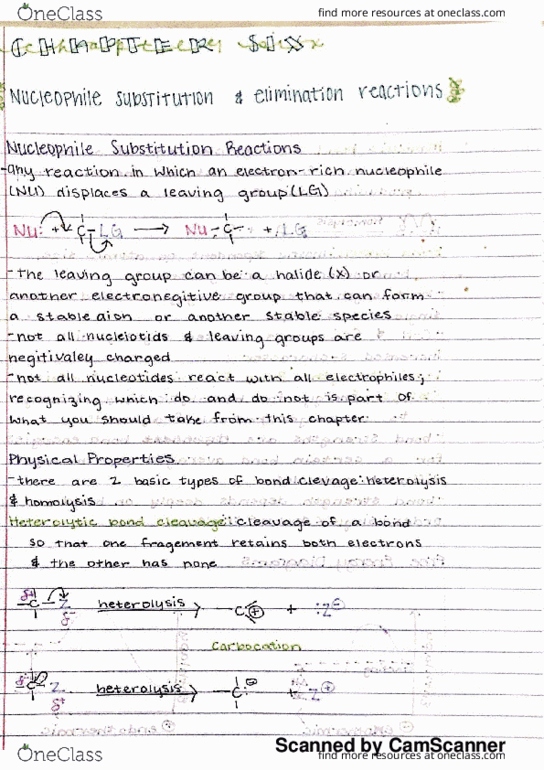 OneClass
find more resources at oneclass.com
CHAPTER SIX
Nucleophile substitution & elimination reactions
Nucleophile Substitution Reactions
-any reaction in which an electron-rich nucleophile
(NU) displaces a leaving group (LG)
Nu: + C-LG → Nu-C- + :LG
-the leaving group can be a halide (x) or
another electronegitive group that can form
a stable aion or another stable species
-not all nucleiotids & leaving groups are
negitivaley charged
-not all nucleotides react with all electrophiles;
recognizing which do and do not is part of
what you should take from this chapter
Physical Properties
-there are 2 basic types of bond clevage: heterolysis
& homolysis
Heterolytic bond cleavage: cleavage of a bond
so that one fragement retains both electrons
& the other has none
δ+ -C-Z δ- heterolysis → C⊕ + :Z⊖
Carbocation
δ- -C Z δ+ heterolysis → -C:⊖ + Z⊕
Scanned by CamScanner
OneClass
find more resources at oneclass.com